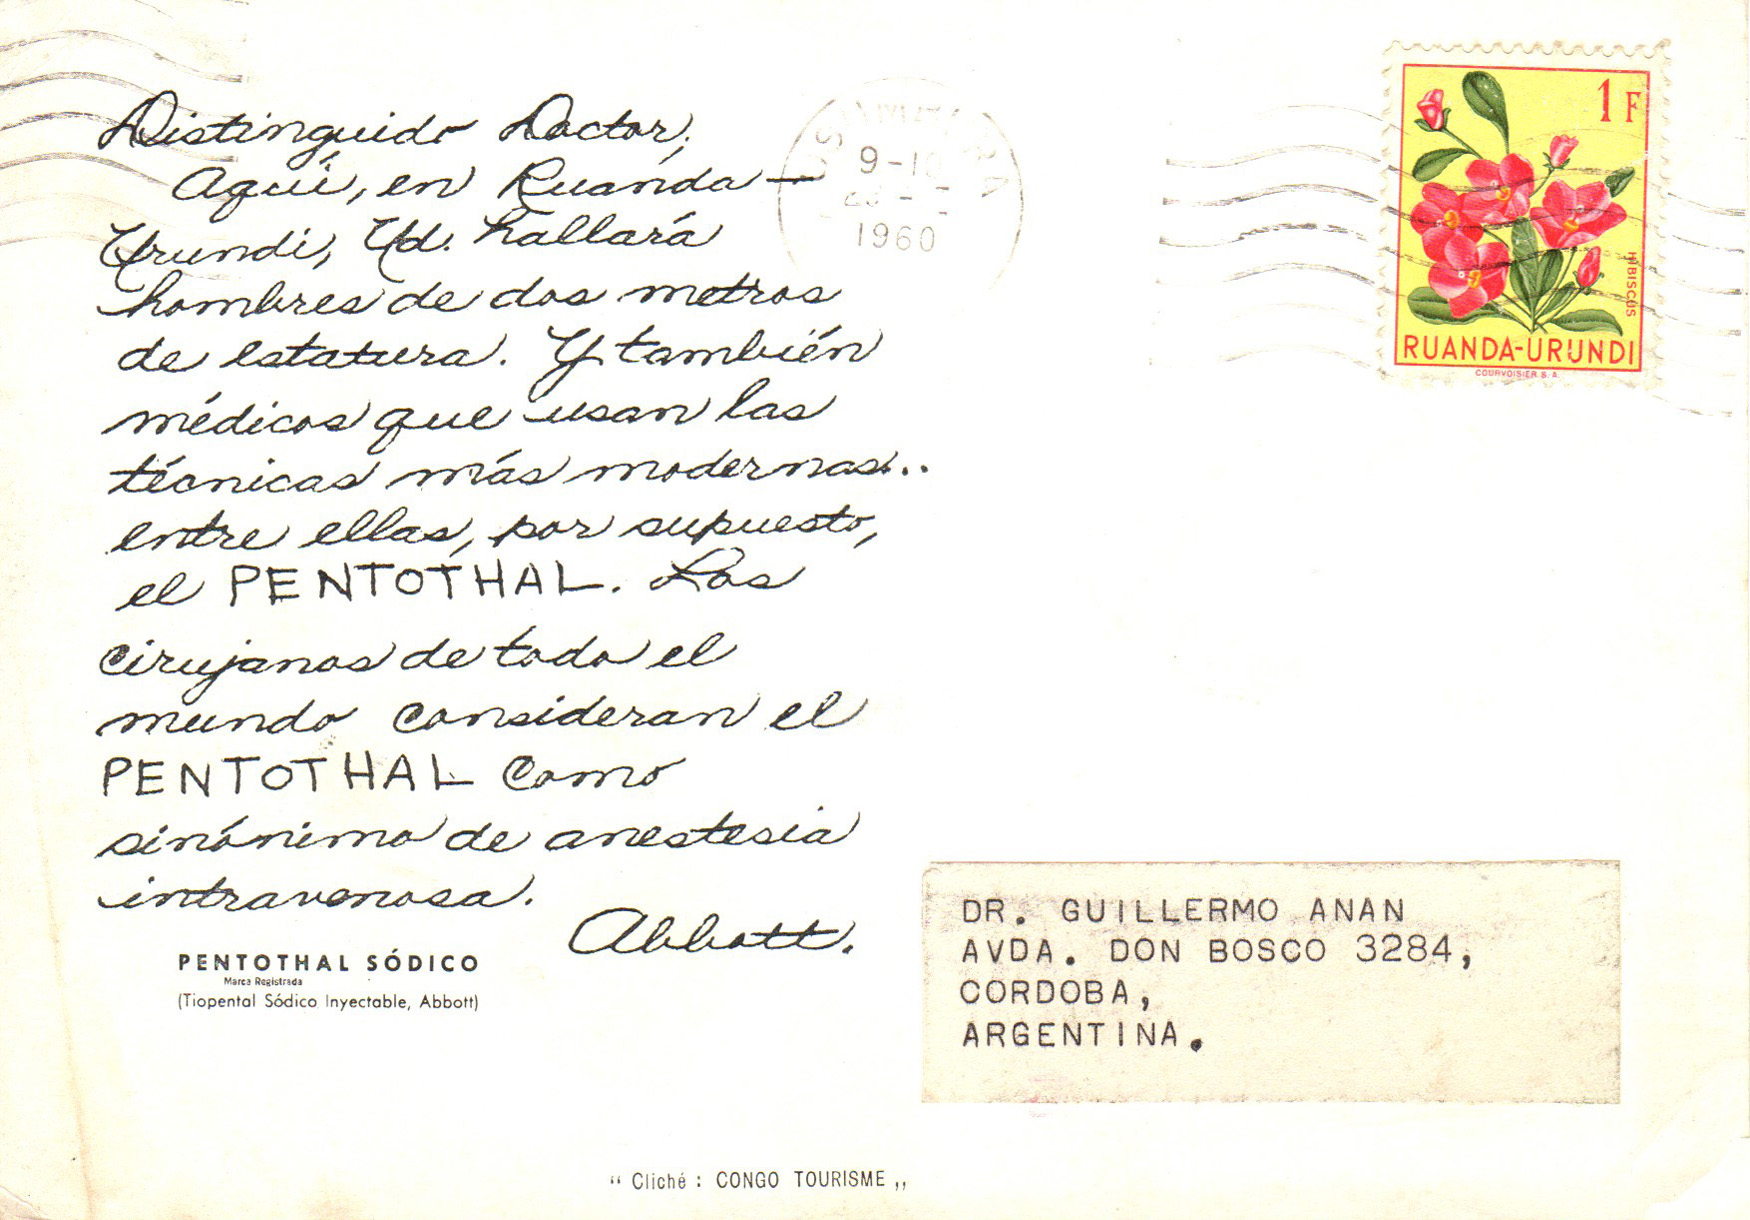 Distinguido Doctor,
Aquí, en Ruanda-
Urundi, Ud. hallará
hombres de dos metros
de estatura. Y también
médicos que usan las
técnicas más modernas...
entre ellas, por supuesto,
el PENTOTHAL. Los
cirujanos de todo el
mundo consideran el
PENTOTHAL como
sinónimo de anestesia
intravenosa.
Abbott.
PENTOTHAL SÓDICO
Marca Registrada
(Tiopental Sódico Inyectable, Abbott)
9-10
1960
1 F
HIBISCUS
RUANDA-URUNDI
COURVOISIER S.A.
DR. GUILLERMO ANAN
AVDA. DON BOSCO 3284,
CORDOBA,
ARGENTINA.
“ Cliché : CONGO TOURISME „